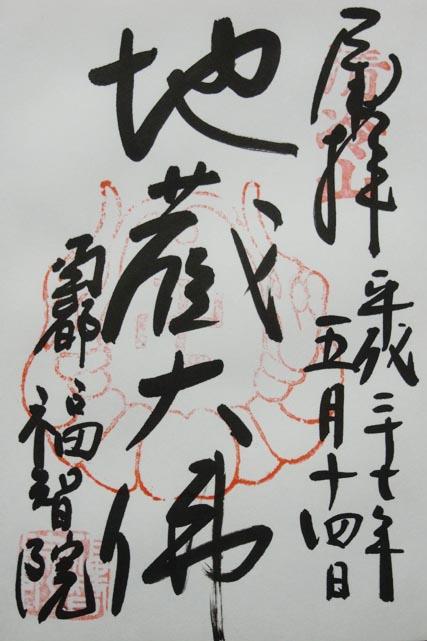 奉拝
平成二十七年
五月十四日
地蔵大佛
南都 福智院